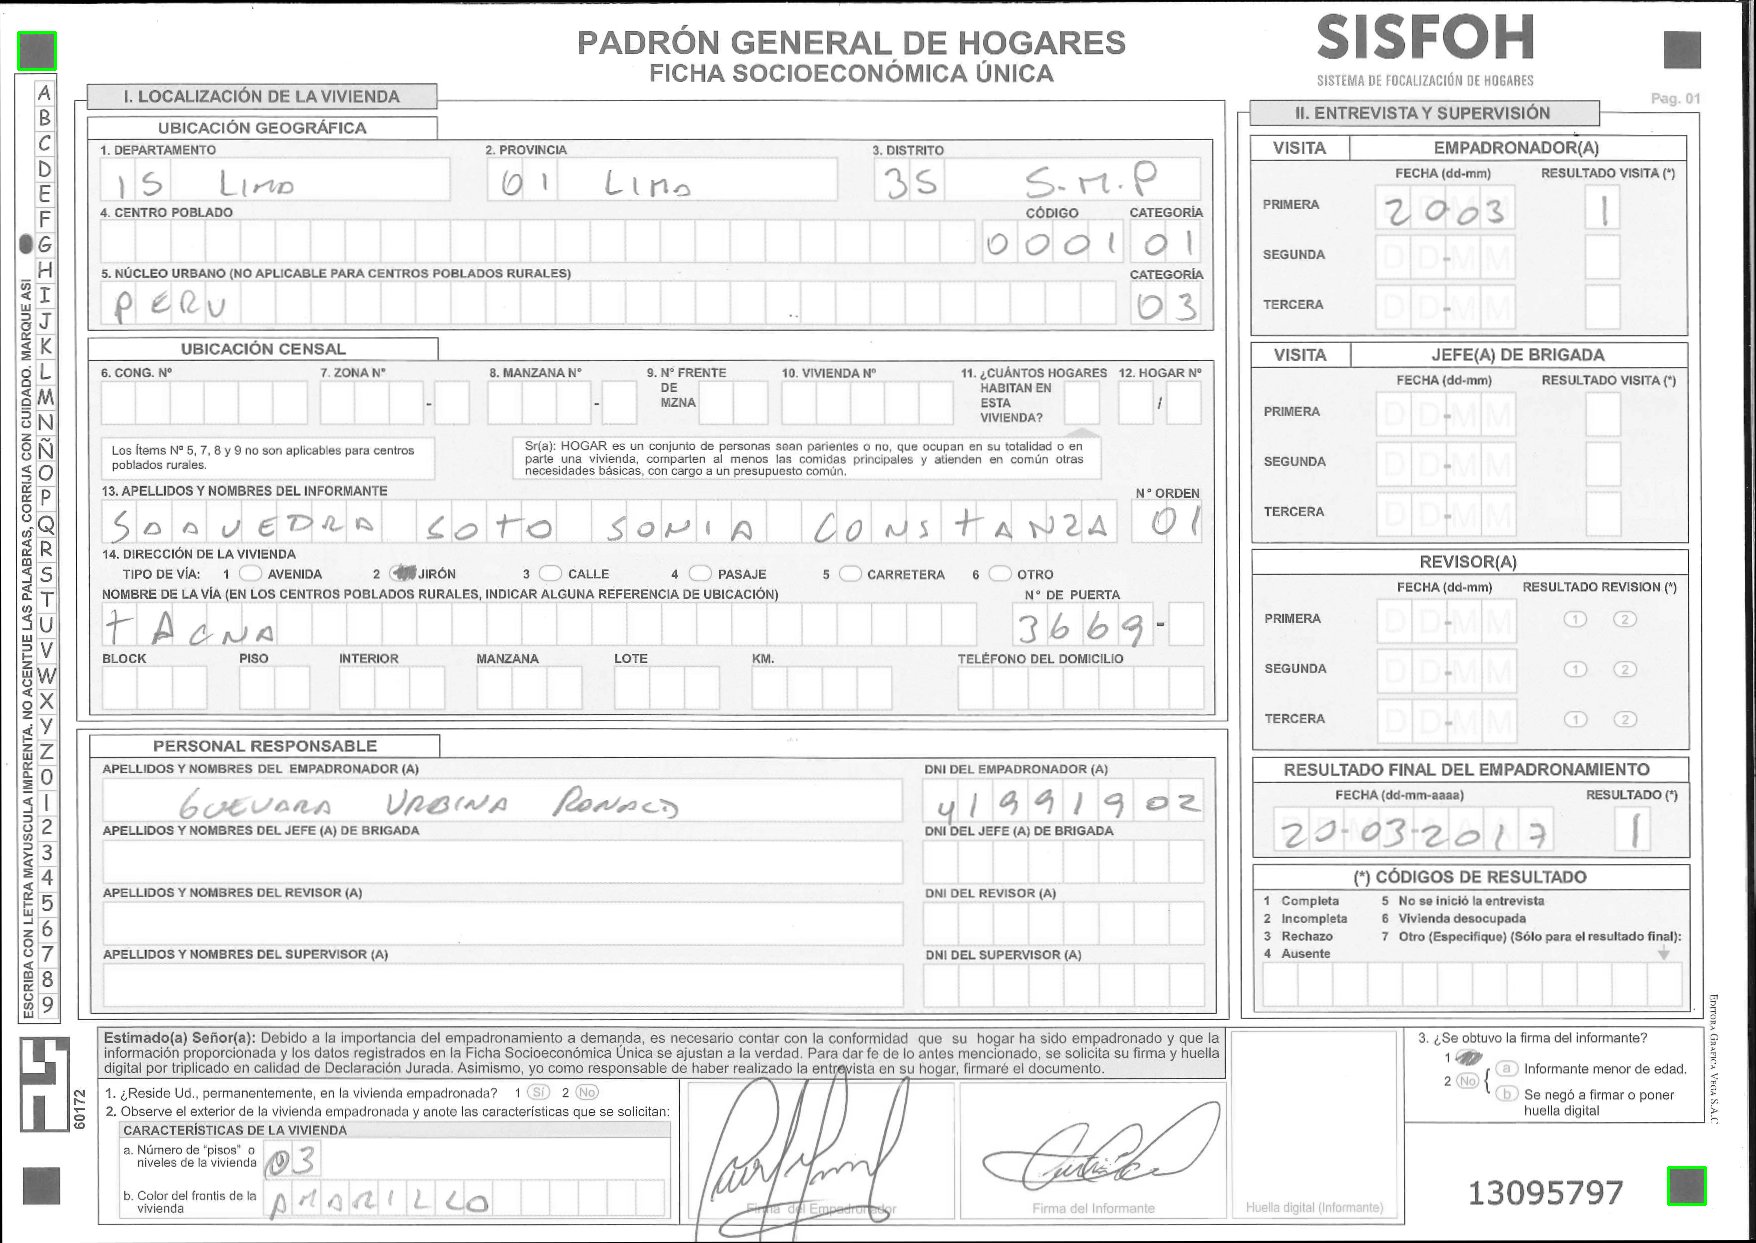 PADRÓN GENERAL DE HOGARES
FICHA SOCIOECONÓMICA ÚNICA
SISFOH
SISTEMA DE FOCALIZACIÓN DE HOGARES
Pag. 01
ESCRIBA CON LETRA MAYUSCULA IMPRENTA. NO ACENTUE LAS PALABRAS, CORRIJA CON CUIDADO. MARQUE ASI
A B C D E F G H I J K L M N Ñ O P Q R S T U V W X Y Z 0 1 2 3 4 5 6 7 8 9
I. LOCALIZACIÓN DE LA VIVIENDA
UBICACIÓN GEOGRÁFICA
1. DEPARTAMENTO 2. PROVINCIA 3. DISTRITO
15 LIMA 01 LIMA 35 S.M.P
4. CENTRO POBLADO CÓDIGO CATEGORÍA
0001 01
5. NÚCLEO URBANO (NO APLICABLE PARA CENTROS POBLADOS RURALES) CATEGORÍA
PERU 03
UBICACIÓN CENSAL
6. CONG. Nº 7. ZONA Nº 8. MANZANA Nº 9. Nº FRENTE DE MZNA 10. VIVIENDA Nº 11. ¿CUÁNTOS HOGARES HABITAN EN ESTA VIVIENDA? 12. HOGAR Nº
- - /
Los Ítems Nº 5, 7, 8 y 9 no son aplicables para centros
poblados rurales.
Sr(a): HOGAR es un conjunto de personas sean parientes o no, que ocupan en su totalidad o en
parte una vivienda, comparten al menos las comidas principales y atienden en común otras
necesidades básicas, con cargo a un presupuesto común.
13. APELLIDOS Y NOMBRES DEL INFORMANTE N° ORDEN
SAAVEDRA SOTO SONIA CONSTANZA 01
14. DIRECCIÓN DE LA VIVIENDA
TIPO DE VÍA: 1 AVENIDA 2 JIRÓN 3 CALLE 4 PASAJE 5 CARRETERA 6 OTRO
NOMBRE DE LA VÍA (EN LOS CENTROS POBLADOS RURALES, INDICAR ALGUNA REFERENCIA DE UBICACIÓN) N° DE PUERTA
TACNA 3669-
BLOCK PISO INTERIOR MANZANA LOTE KM. TELÉFONO DEL DOMICILIO
PERSONAL RESPONSABLE
APELLIDOS Y NOMBRES DEL EMPADRONADOR (A) DNI DEL EMPADRONADOR (A)
GUEVARA URBINA RONALD 41991902
APELLIDOS Y NOMBRES DEL JEFE (A) DE BRIGADA DNI DEL JEFE (A) DE BRIGADA
APELLIDOS Y NOMBRES DEL REVISOR (A) DNI DEL REVISOR (A)
APELLIDOS Y NOMBRES DEL SUPERVISOR (A) DNI DEL SUPERVISOR (A)
II. ENTREVISTA Y SUPERVISIÓN
VISITA EMPADRONADOR(A)
FECHA (dd-mm) RESULTADO VISITA (*)
PRIMERA 2003 1
SEGUNDA DD-MM
TERCERA DD-MM
VISITA JEFE(A) DE BRIGADA
FECHA (dd-mm) RESULTADO VISITA (*)
PRIMERA DD-MM
SEGUNDA DD-MM
TERCERA DD-MM
REVISOR(A)
FECHA (dd-mm) RESULTADO REVISION (*)
PRIMERA DD-MM 1 2
SEGUNDA DD-MM 1 2
TERCERA DD-MM 1 2
RESULTADO FINAL DEL EMPADRONAMIENTO
FECHA (dd-mm-aaaa) RESULTADO (*)
20-03-2017 1
(*) CÓDIGOS DE RESULTADO
1 Completa 5 No se inició la entrevista
2 Incompleta 6 Vivienda desocupada
3 Rechazo 7 Otro (Especifique) (Sólo para el resultado final):
4 Ausente
Estimado(a) Señor(a): Debido a la importancia del empadronamiento a demanda, es necesario contar con la conformidad que su hogar ha sido empadronado y que la
información proporcionada y los datos registrados en la Ficha Socioeconómica Única se ajustan a la verdad. Para dar fe de lo antes mencionado, se solicita su firma y huella
digital por triplicado en calidad de Declaración Jurada. Asimismo, yo como responsable de haber realizado la entrevista en su hogar, firmaré el documento.
1. ¿Reside Ud., permanentemente, en la vivienda empadronada? 1 Sí 2 No
2. Observe el exterior de la vivienda empadronada y anote las características que se solicitan:
CARACTERÍSTICAS DE LA VIVIENDA
a. Número de "pisos" o
niveles de la vivienda 03
b. Color del frontis de la
vivienda AMARILLO
Firma del Empadronador
Firma del Informante
Huella digital (Informante)
3. ¿Se obtuvo la firma del informante?
1
2 No
a Informante menor de edad.
b Se negó a firmar o poner
huella digital
60172
13095797
EDITORA GRAFICA VEGA S.A.C